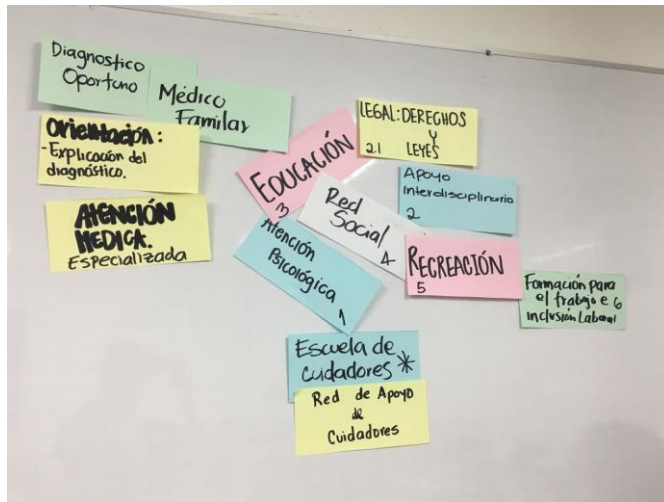 Diagnostico
Oportuno
Médico
Familar
Orientación:
- Explicación del
diagnóstico.
ATENCIÓN
MEDICA.
Especializada
EDUCACIÓN
3
LEGAL: DERECHOS
Y
2.1 LEYES
Apoyo
Interdisciplinario
2
Red
Social
4
Atención
Psicológica
1
RECREACIÓN
5
Formación para
el trabajo e 6
inclusión Laboral
Escuela de
Cuidadores *
Red de Apoyo
de
Cuidadores